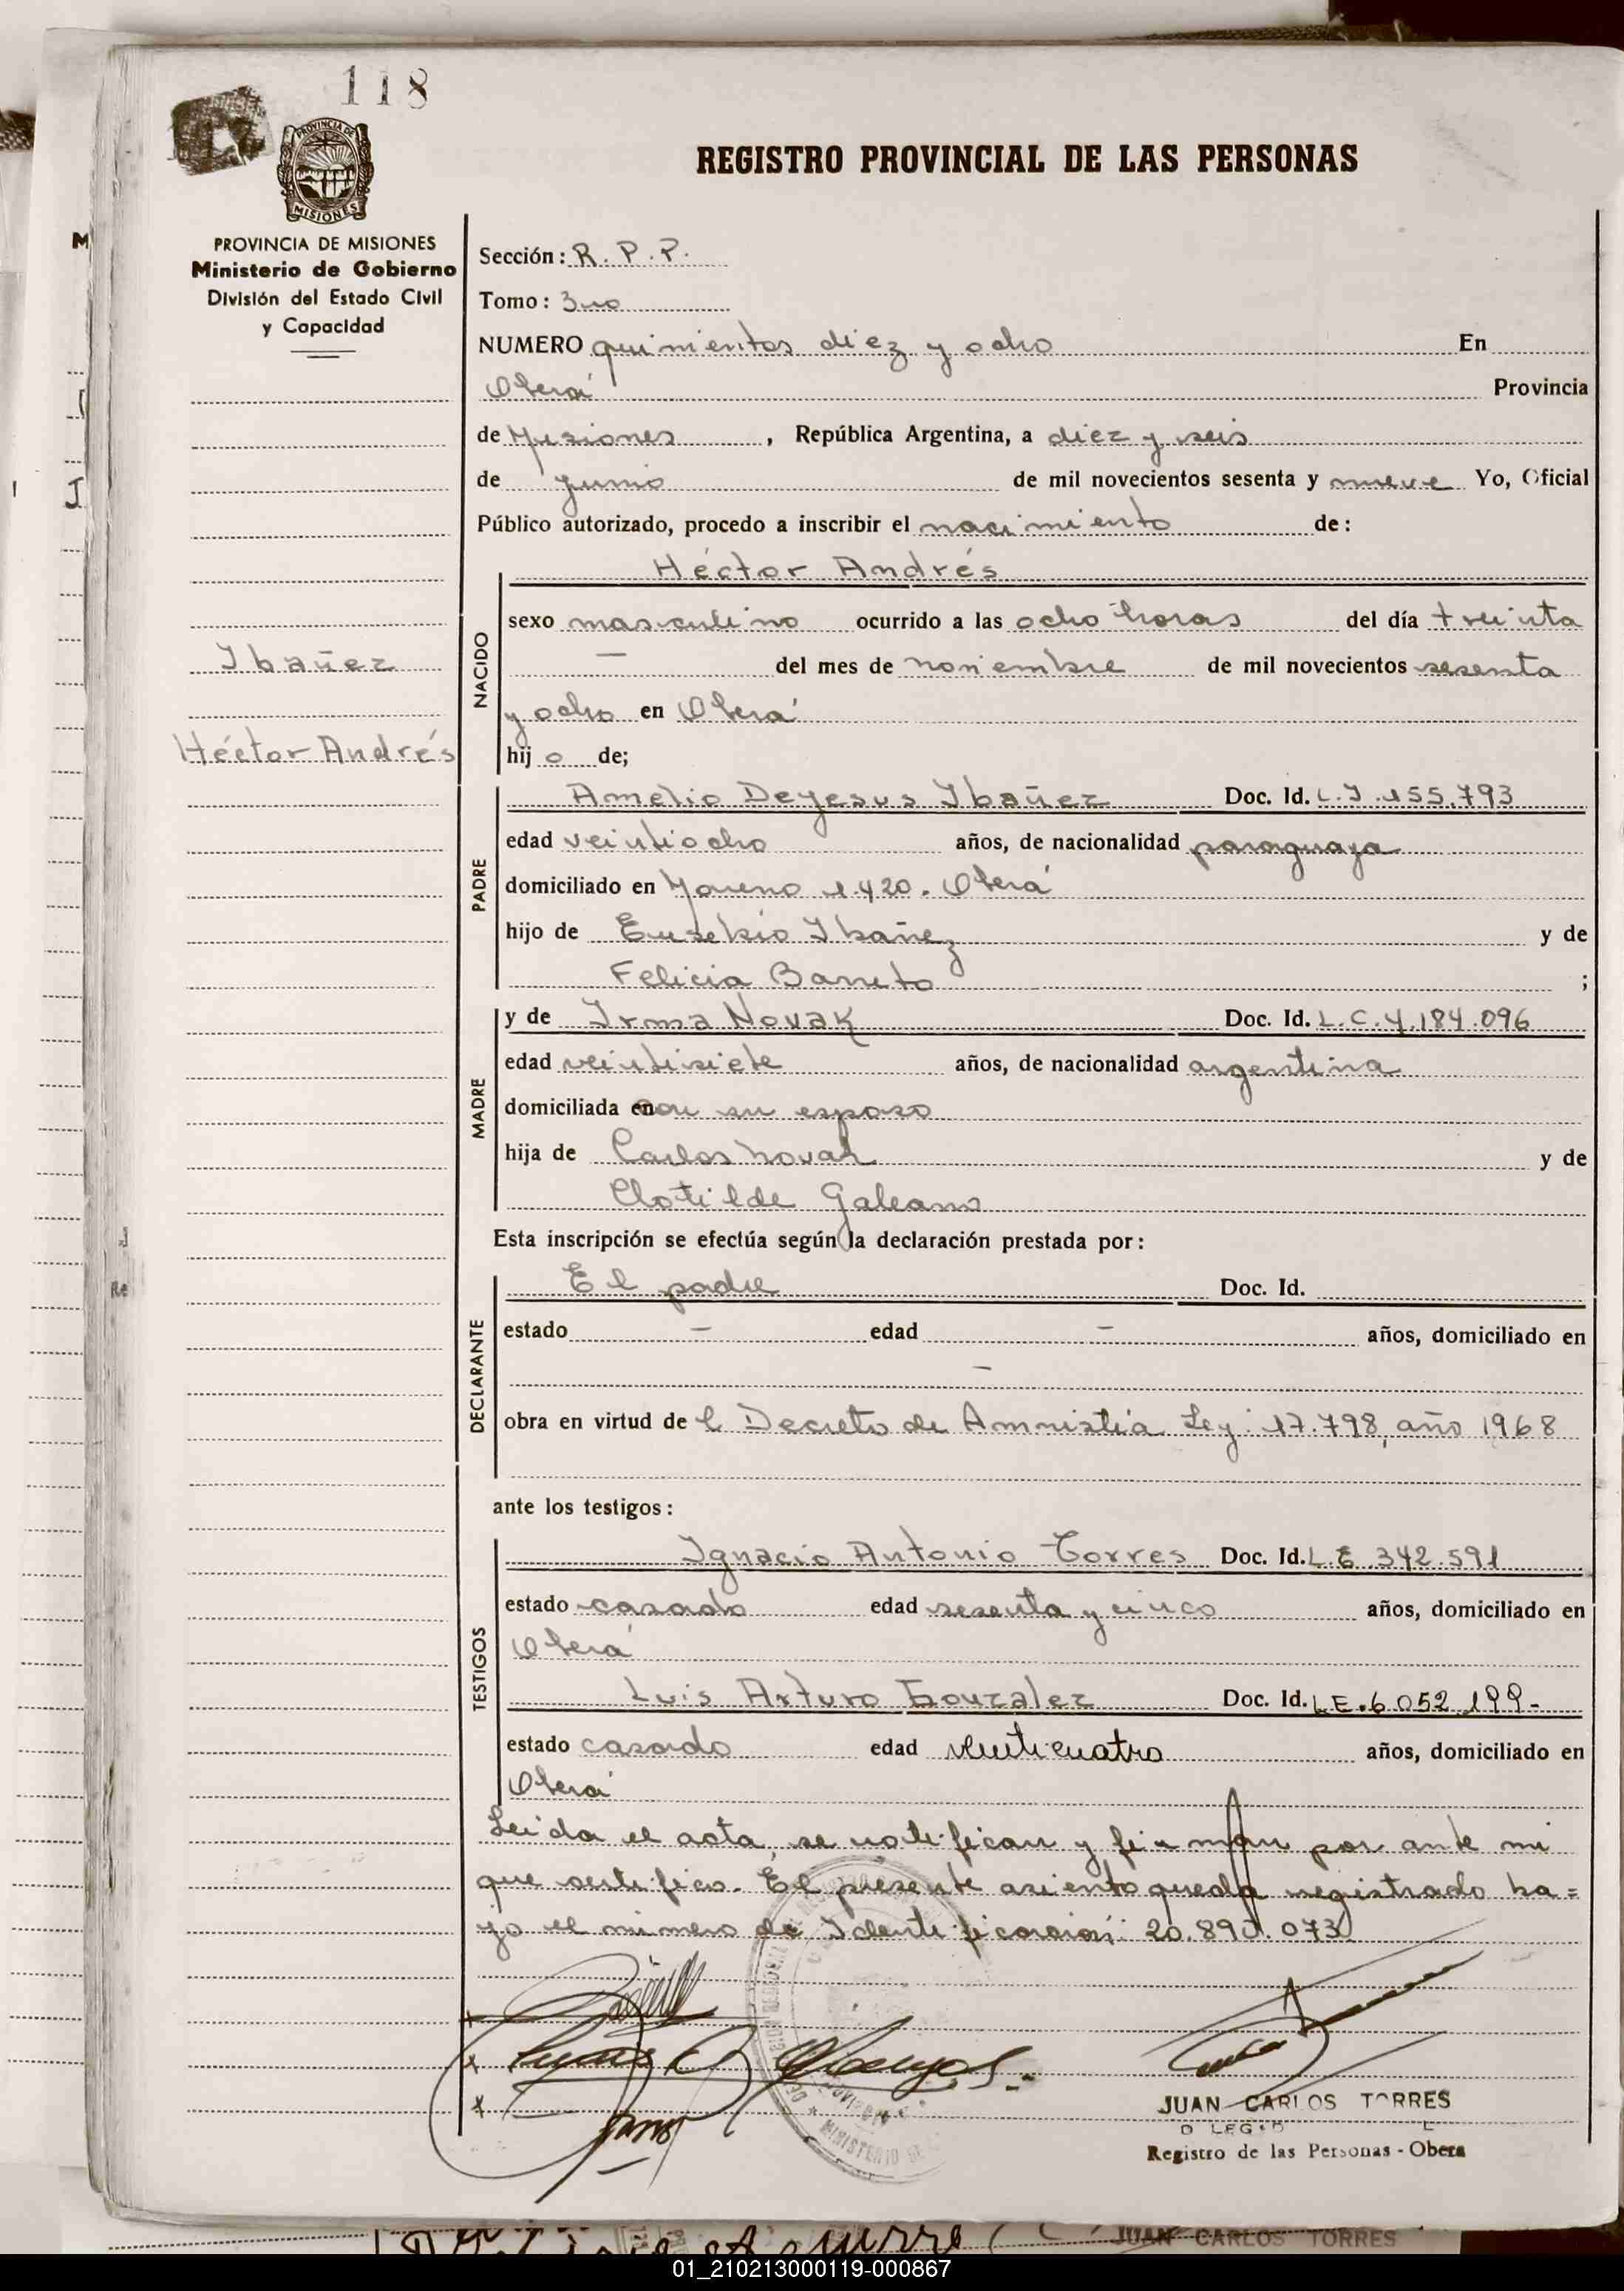 118
PROVINCIA DE
MISIONES
REGISTRO PROVINCIAL DE LAS PERSONAS
PROVINCIA DE MISIONES
Ministerio de Gobierno
División del Estado Civil
y Capacidad
Sección: R. P. P.
Tomo: 3ro
NUMERO quinientos diez y ocho En
Oberá Provincia
de Misiones, República Argentina, a diez y seis
de junio de mil novecientos sesenta y nueve Yo, Oficial
Público autorizado, procedo a inscribir el nacimiento de:
Héctor Andrés
NACIDO
sexo masculino ocurrido a las ocho horas del día treinta
Ibañez
— del mes de noviembre de mil novecientos sesenta
y ocho en Oberá
Héctor Andrés
hij o de;
PADRE
Amelio Dejesus Ibañez Doc. Id. C.I. 155.793
edad veintiocho años, de nacionalidad paraguaya
domiciliado en Moreno 1.420. Oberá
hijo de Eusebio Ibañez y de
Felicia Barreto ;
MADRE
y de Irma Novak Doc. Id. L.C. 4.184.096
edad veintisiete años, de nacionalidad argentina
domiciliada en con su esposo
hija de Carlos Novak y de
Clotilde Galeano
Esta inscripción se efectúa según la declaración prestada por:
DECLARANTE
El padre Doc. Id.
estado — edad — años, domiciliado en
—
obra en virtud de l Decreto de Amnistía Ley: 17.798, año 1968
ante los testigos:
TESTIGOS
Ignacio Antonio Torres Doc. Id. L.E. 342.591
estado casado edad sesenta y cinco años, domiciliado en
Oberá
Luis Arturo Gonzalez Doc. Id. L.E. 6.052.199-
estado casado edad veinticuatro años, domiciliado en
Oberá
Leida el acta, se notifican y firman por ante mi
que certifico. El presente asiento queda registrado ba=
jo el número de Identificación: 20.890.073
JUAN CARLOS TORRES
Registro de las Personas - Obera
MINISTERIO DE
JUAN CARLOS TORRES
01_210213000119-000867